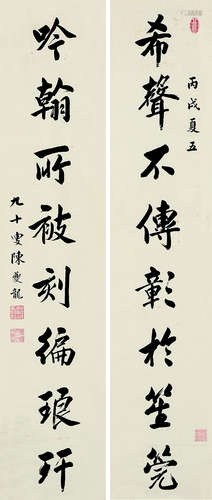 希聲不傳彰於笙筦
丙戌夏五
吟翰所被刻徧琅玕
九十叟陳夔龍